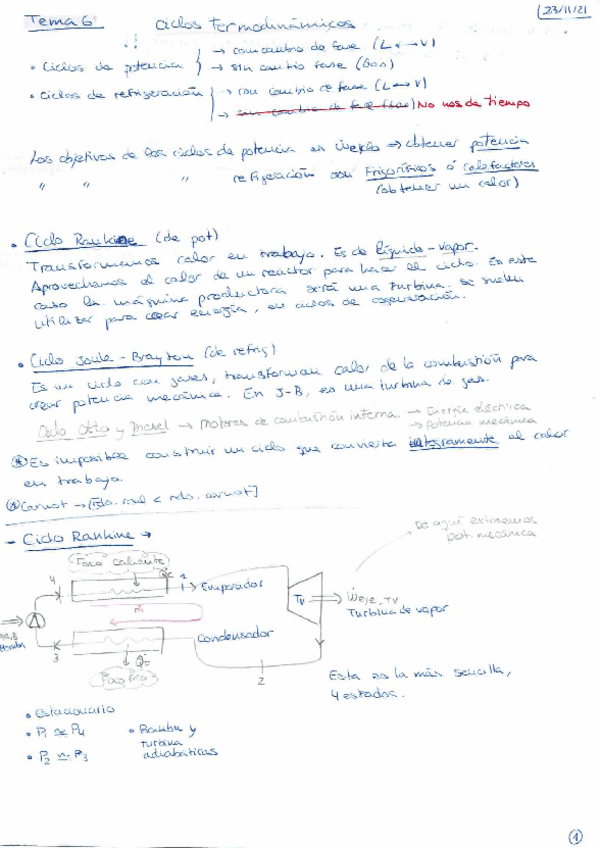 Tema 6 Ciclos termodinámicos 23/11/21
• Ciclos de potencia → con cambio de fase (L ↔ V)
→ sin cambio fase (Gas)
• Ciclos de refrigeración → con cambio de fase (L ↔ V)
→ sin cambio de fase (Gas) No nos da tiempo
Los objetivos de los ciclos de potencia es → obtener potencia
" " " refigeración son Frigoríficos ó calefactores
(obtener un calor)
• Ciclo Rankine (de pot)
Transformamos calor en trabajo. Es de líquido-vapor.
Aprovechamos el calor de un reactor para hacer el ciclo. En este
caso la máquina productora será una turbina. Se suelen
utilizar para crear energía, en ciclos de cogeneración.
• Ciclo Joule-Brayton (de refrig)
Es un ciclo con gases, transforman calor de la combustión para
crear potencia mecánica. En J-B, es una turbina de gas.
Ciclo Otto y Diesel → motores de combustión interna. → Energía eléctrica
→ Potencia mecánica
Es imposible construir un ciclo que convierta íntegramente el calor
en trabajo.
Carnot → [rdo. real < rdo. carnot]
- Ciclo Rankine →
De aquí extraemos
pot. mecánica
Foco caliente
4 1 Evaporador
ṁ Tv Ẇeje, TV
Turbina de vapor
Bomba 3 Condensador
Foco frío 2
Esta es la más sencilla,
4 estados.
• Estacionario
• P₁ ≃ P₄ • Bomba y
turbina
• P₂ ≃ P₃ adiabáticas
1